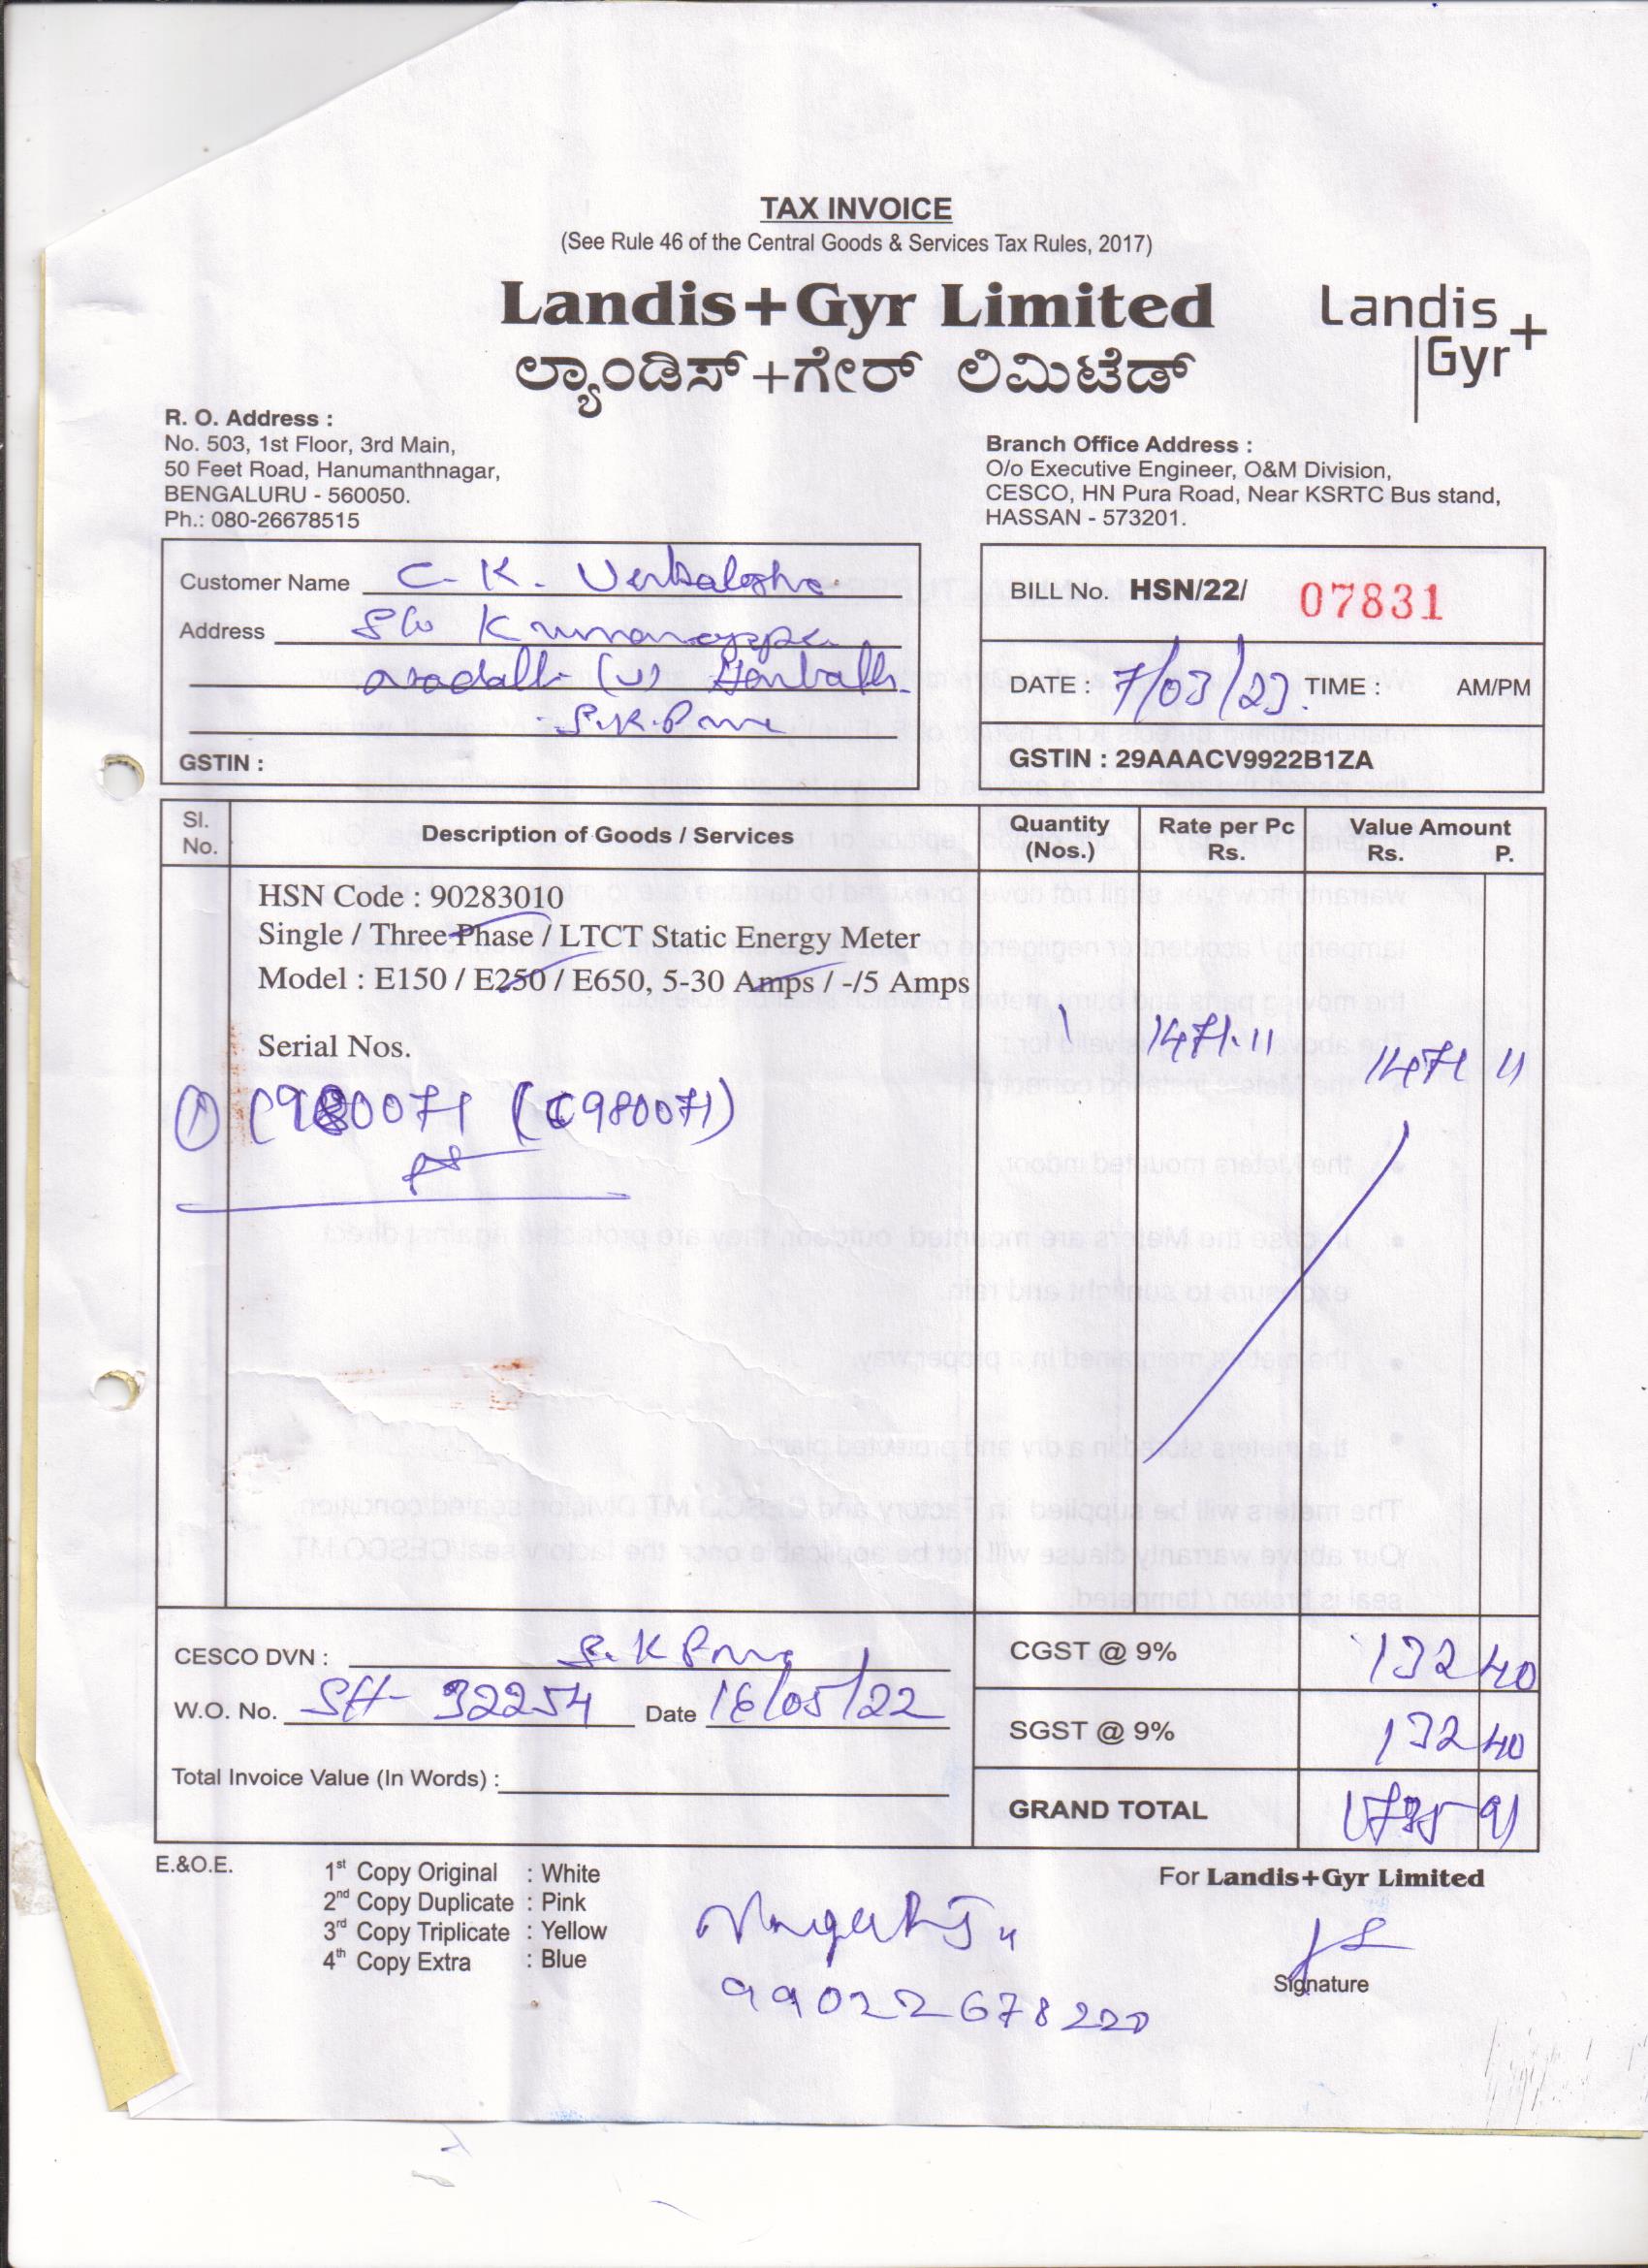 TAX INVOICE
(See Rule 46 of the Central Goods & Services Tax Rules, 2017)
Landis+Gyr Limited
Landis
Gyr+
ಲ್ಯಾಂಡಿಸ್+ಗೇರ್ ಲಿಮಿಟೆಡ್
R. O. Address :
No. 503, 1st Floor, 3rd Main,
50 Feet Road, Hanumanthnagar,
BENGALURU - 560050.
Ph.: 080-26678515
Branch Office Address :
O/o Executive Engineer, O&M Division,
CESCO, HN Pura Road, Near KSRTC Bus stand,
HASSAN - 573201.
Customer Name C. K.
Address S/o
GSTIN :
BILL No. HSN/22/ 07831
DATE : 7/03/23. TIME : AM/PM
GSTIN : 29AAACV9922B1ZA
Sl. No. Description of Goods / Services Quantity (Nos.) Rate per Pc Rs. Value Amount Rs. P.
HSN Code : 90283010
Single / Three Phase / LTCT Static Energy Meter
Model : E150 / E250 / E650, 5-30 Amps / -/5 Amps
1 1471.11 1471 11
Serial Nos.
① (C980071)
CESCO DVN :
W.O. No. SH- 32254 Date 16/05/22
Total Invoice Value (In Words) :
CGST @ 9% 132 40
SGST @ 9% 132 40
GRAND TOTAL 1735 91
E.&O.E.
1st Copy Original : White
2nd Copy Duplicate : Pink
3rd Copy Triplicate : Yellow
4th Copy Extra : Blue
For Landis+Gyr Limited
Signature